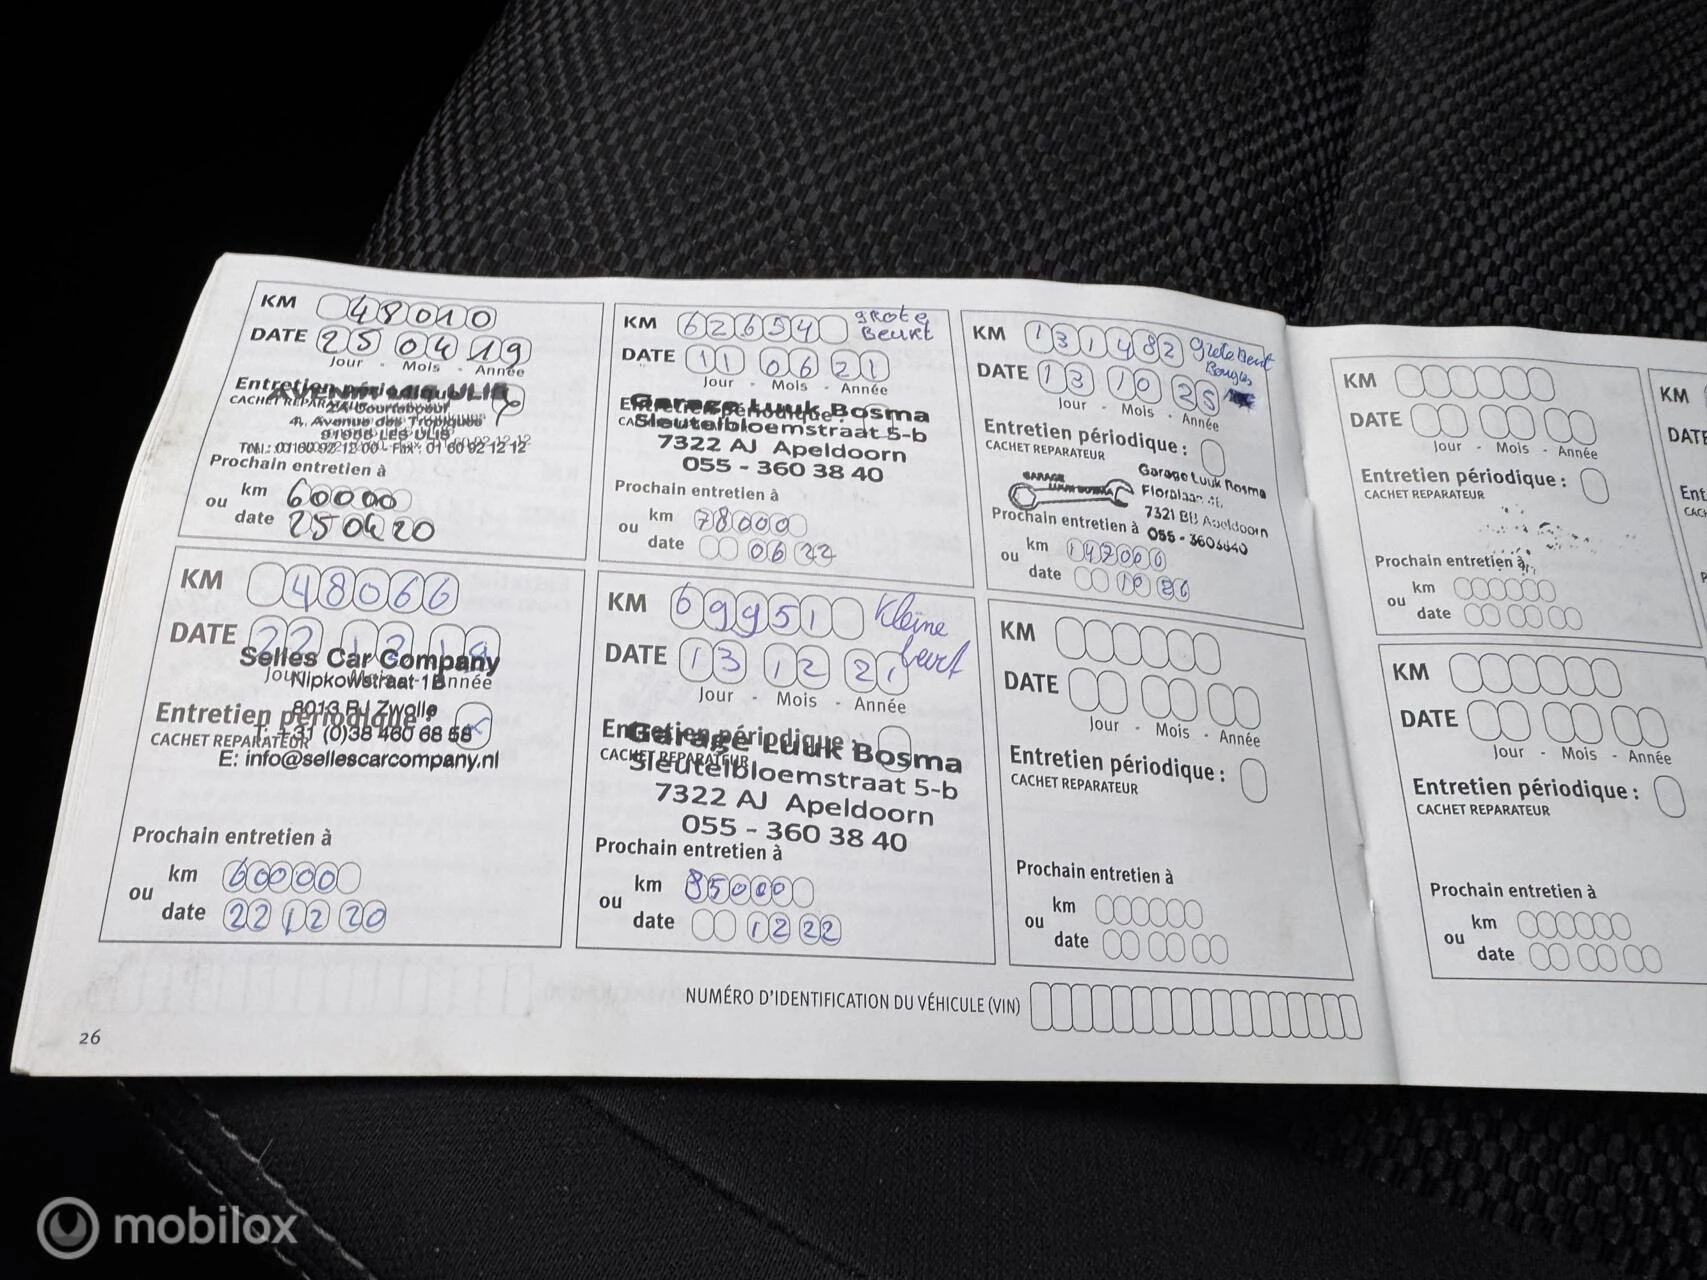 KM 48010
DATE 25 04 19
Jour - Mois - Année
Entretien périodique
CACHET REPARATEUR
4, Avenue des Tropiques
91955 LES ULIS
Prochain entretien à
km 60000
ou
date 25 04 20
KM 48066
DATE 22 12 19
Selles Car Company
Jour - Mois - Année
Nipkowstraat 1B
8013 RJ Zwolle
Entretien périodique :
T: +31 (0)38 460 68 58
CACHET REPARATEUR
E: info@sellescarcompany.nl
Prochain entretien à
km 60000
ou
date 22 12 20
KM 62654 grote
Beurt
DATE 11 06 21
Jour - Mois - Année
Garage Luuk Bosma
Entretien périodique :
Sleutelbloemstraat 5-b
7322 AJ Apeldoorn
055 - 360 38 40
Prochain entretien à
km 78000
ou
date 06 22
KM 69951 Kleine
beurt
DATE 13 12 21
Jour - Mois - Année
Entretien périodique :
Garage Luuk Bosma
CACHET REPARATEUR
Sleutelbloemstraat 5-b
7322 AJ Apeldoorn
055 - 360 38 40
Prochain entretien à
km 85000
ou
date 12 22
KM 131482 Grote Beurt
Bougies
DATE 13 10 25
Jour - Mois - Année
Entretien périodique :
CACHET REPARATEUR
GARAGE
LUUK BOSMA
Garage Luuk Bosma
Floralaan
7321 Apeldoorn
055 - 3603840
Prochain entretien à
km 147000
ou
date 10 26
KM
DATE
Jour - Mois - Année
Entretien périodique :
CACHET REPARATEUR
Prochain entretien à
km
ou
date
KM
DATE
Jour - Mois - Année
Entretien périodique :
CACHET REPARATEUR
Prochain entretien à
km
ou
date
KM
DATE
Jour - Mois - Année
Entretien périodique :
CACHET REPARATEUR
Prochain entretien à
km
ou
date
KM
DATE
NUMÉRO D'IDENTIFICATION DU VÉHICULE (VIN)
26
mobilox